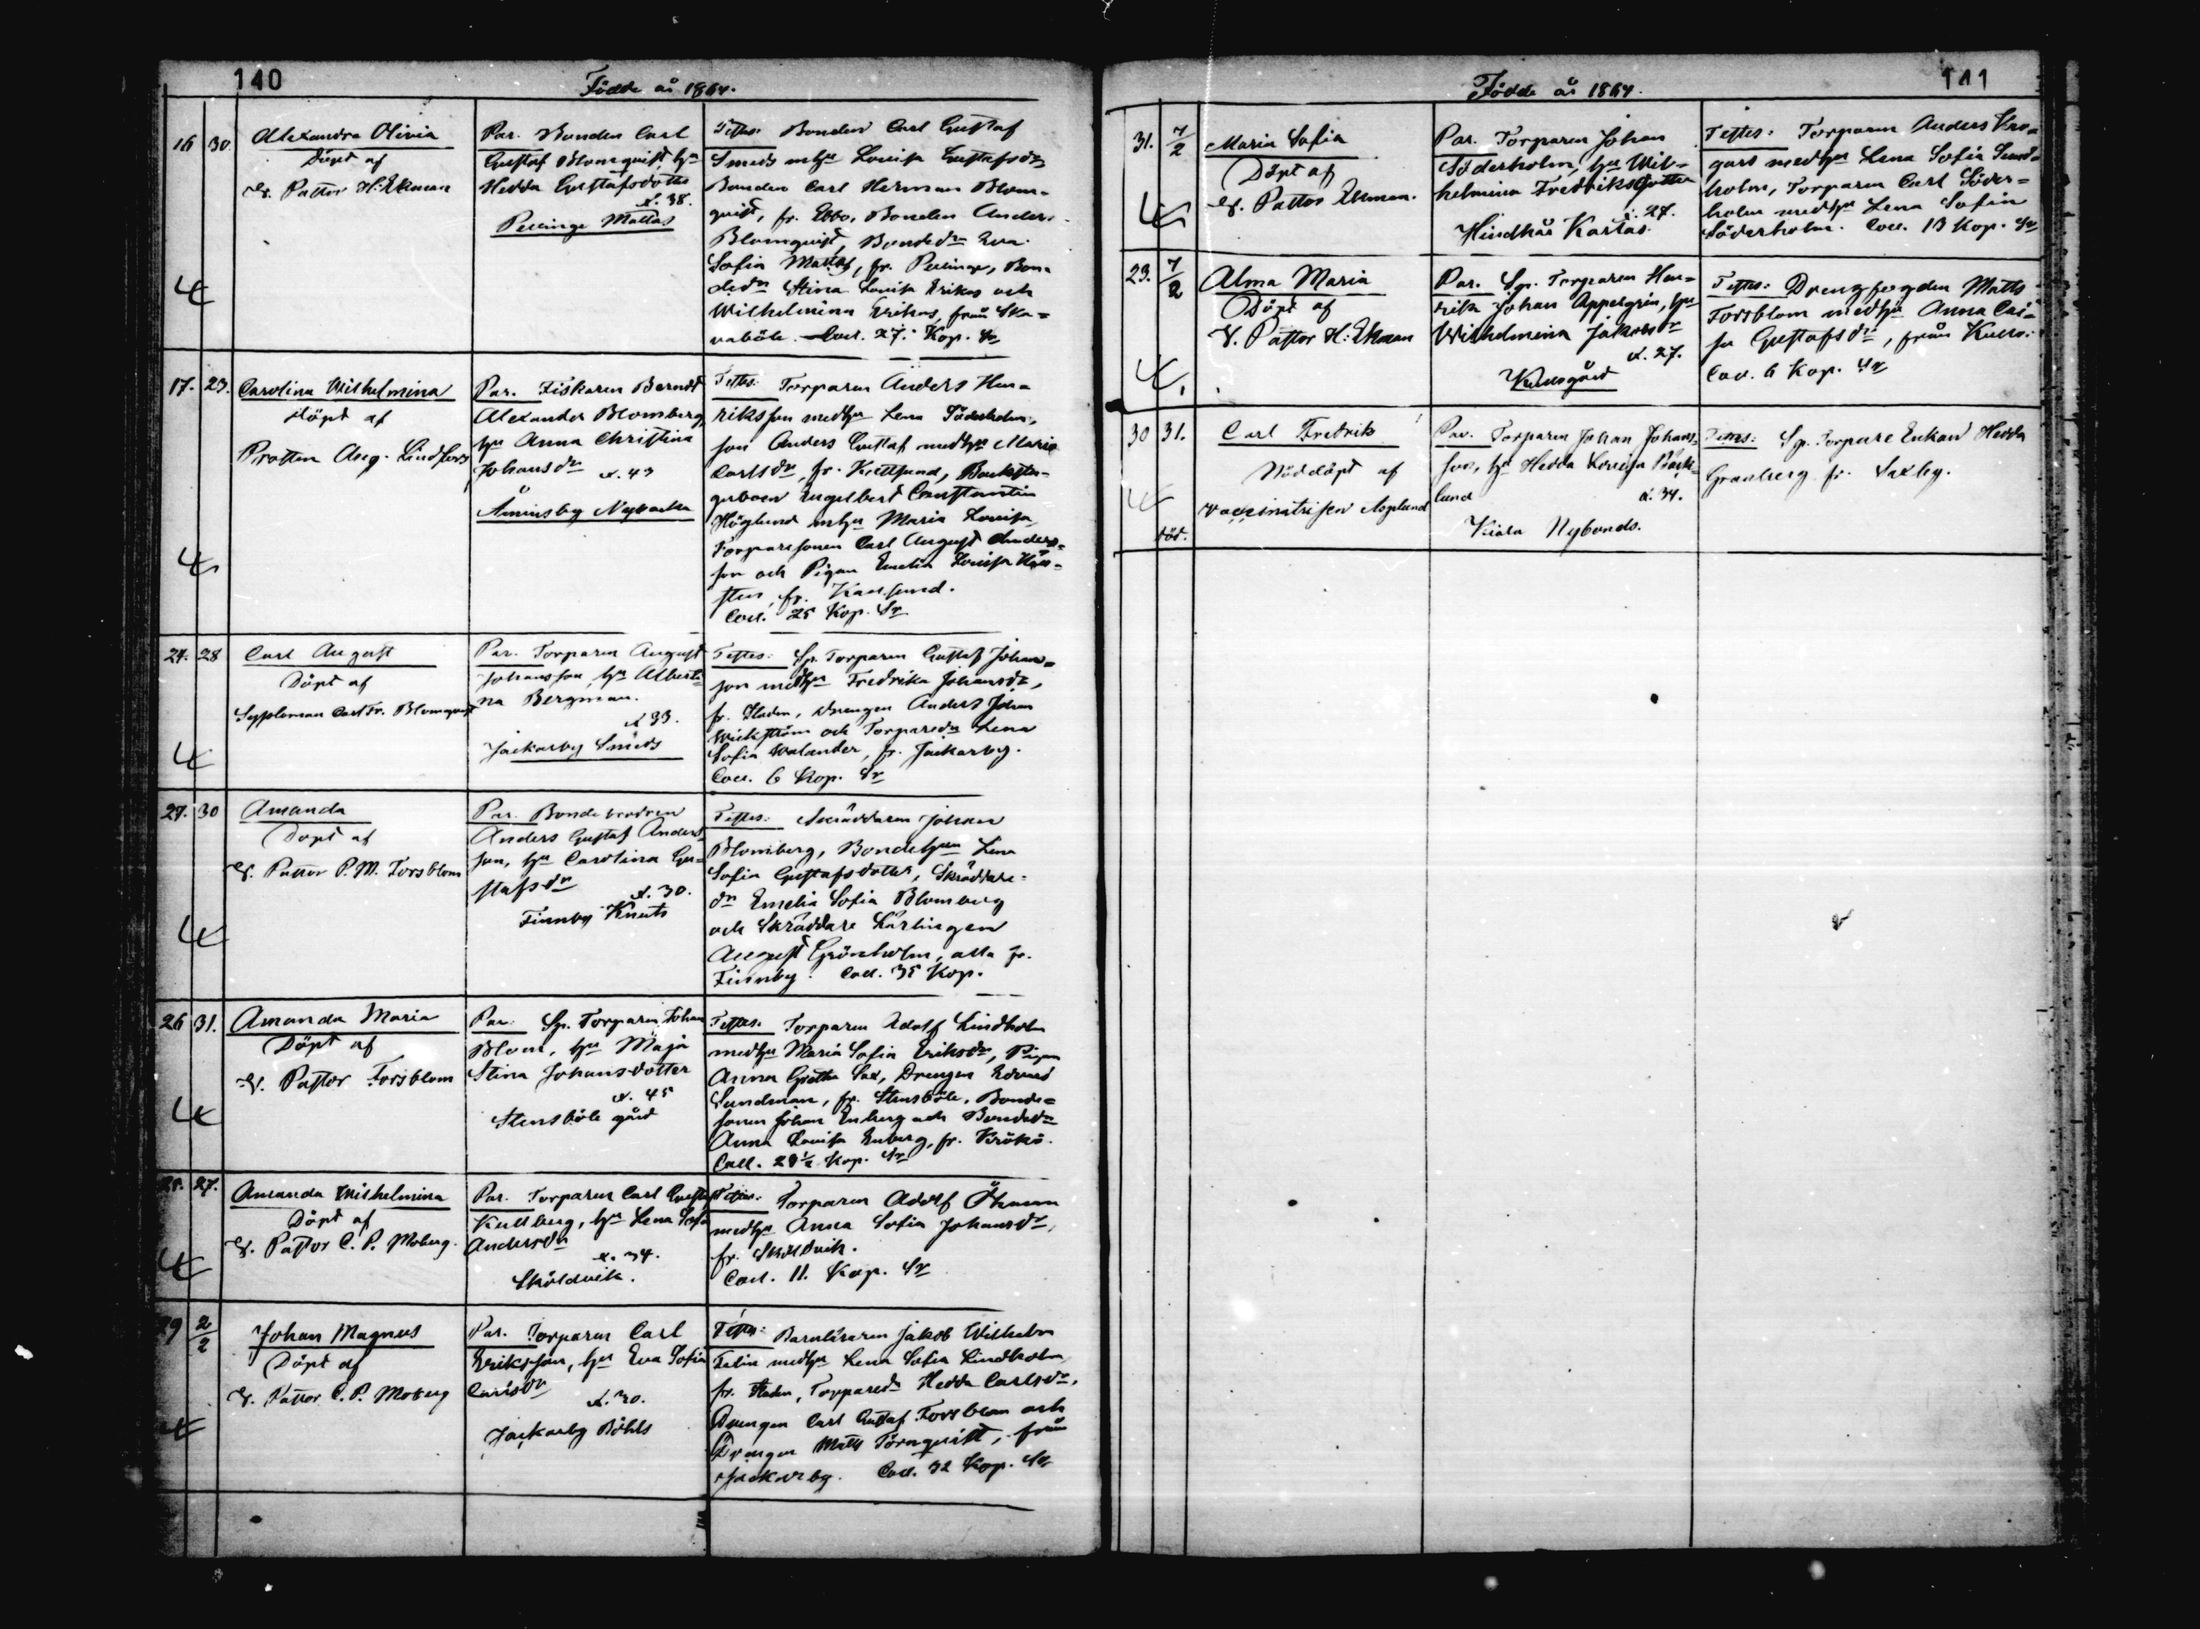 140
Födde år 1864.
16 30. Alexandra Olivia
Döpt af
V. Pastor H. Ekman
Par. Bonden Carl
Gustaf Blomquist hu
Hedda Gustafsdotter
ä. 38.
Pellinge Mattas
Testes: Bonden Carl Gustaf
Smeds m hu Lovisa Gustafsdr
Bonden Carl Herman Blom-
quist, fr. Ebbo, Bonden Anders
Blomquist, Bondedr Eva
Sofia Mattas, fr. Pellinge, Bon-
dedr Stina Lovisa Erikas och
Wilhelmina Erikas, från Ska-
vaböle. Coll. 27. Kop. Sr
17. 23. Carolina Wilhelmina
Döpt af
Prosten Aug. Lindfors
Par. Fiskaren Berndt
Alexander Blomberg,
hu Anna Christina
Johansdr ä. 43
Åminsby Nybacka
Testes: Torparen Anders Hen-
riksson med hu Lena Söderholm,
son Anders Gustaf med hu Maria
Carlsdr, fr. Kullsund,
Engelbert Constantin
Höglund m hu Maria Lovisa
Torparesonen Carl August Anders-
son och Pigan Emelia Lovisa
fr.
Coll. 25 Kop. Sr
24. 28 Carl August
Döpt af
Carl Fr. Blomqvist
Par. Torparen August
Johansson, hu Alberti-
na Bergman.
ä 33.
Jackarby Smeds
Testes: Sp. Torparen Gustaf Johan-
son med hu Fredrika Johansdr,
fr. Staden, Drengen Anders Johan
Wickström och Torparedr Lena
Sofia Walander, fr. Jackarby.
Coll. 6 Kop. Sr
27. 30 Amanda
Döpt af
V. Pastor P. M. Forsblom
Par. Bondebrodren
Anders Gustaf Anders-
son, hu Carolina Gu-
stafsdr
ä. 30.
Finnby Knuts
Testes: Skräddaren Johan
Blomberg, Bondehun Lena
Sofia Gustafsdotter, Skräddare-
dr Emelia Sofia Blomberg
och Skräddare Lärlingen
August Grönholm, alla fr.
Finnby. Coll. 35 Kop.
26 31. Amanda Maria
Döpt af
V. Pastor Forsblom
Par. Sp. Torparen Johan
Blom, hu Maja
Stina Johansdotter
ä. 45
Stensböle gård
Testes. Torparen Adolf Lindholm
med hu Maria Sofia Eriksdr, Pigan
Anna Gretha Sax, Drengen Edvard
Sundman, fr. Stensböle, Bonde-
sonen Johan Enberg och Bondedr
Anna Lovisa Enberg, fr. Krökö.
Coll. 28½ Kop. Sr
25. 27. Amanda Wilhelmina
Döpt af
V. Pastor C. P. Moberg.
Par. Torparen Carl Gustaf
Kullberg, hu Lena Sofia
Andersdr
ä. 34.
Sköldvik.
Testes: Torparen Adolf Öhman
med hu Anna Sofia Johansdr,
fr. Sköldvik.
Coll. 11. Kop. Sr
29 2/2 Johan Magnus
Döpt af
V. Pastor C. P. Moberg
Par. Torparen Carl
Eriksson, hu Eva Sofia
Carlsdr
ä. 30.
Jackarby Böhls
Testes: Barnläraren Jakob Wilhelm
Felin med hu Lena Sofia Lindholm
fr. Staden, Torparedr Hedda Carlsdr,
Drengen Carl Gustaf Forsblom och
Drengen Matts Törnquist, från
Jackarby. Coll. 32 Kop. Sr
141
Födde år 1864.
31. 7/2 Maria Sofia
Döpt af
V. Pastor Ekman.
Par. Torparen Johan
Söderholm, hu Wil-
helmina Fredriksdotter
ä. 27.
Hindhår Karlas.
Testes: Torparen Anders
med hu Lena Sofia Sund-
holm, Torparen Carl Söder-
holm med hu Lena Sofia
Söderholm. Coll. 13 Kop. Sr
23. 7/2 Alma Maria
Döpt af
V. Pastor H. Ekman
Par. Sp. Torparen Hen-
rik Johan Appelgrin, hu
Wilhelmina Jakobsdr
ä. 27.
Kullogård
Testes: Drengfogden Matts
Forsblom med hu Anna Cai-
sa Gustafsdr, från Kullo.
Coll. 6 Kop. Sr
30 31. Carl Fredrik
Nöddöpt af
vaccinatrisen Asplund
död.
Par. Torparen Johan Johans-
son, hu Hedda Lovisa Bäck-
lund
ä. 34.
Kiala Nybonds.
Testes: Sp. Torpare Enkan Hedda
Granberg fr. Saxby.